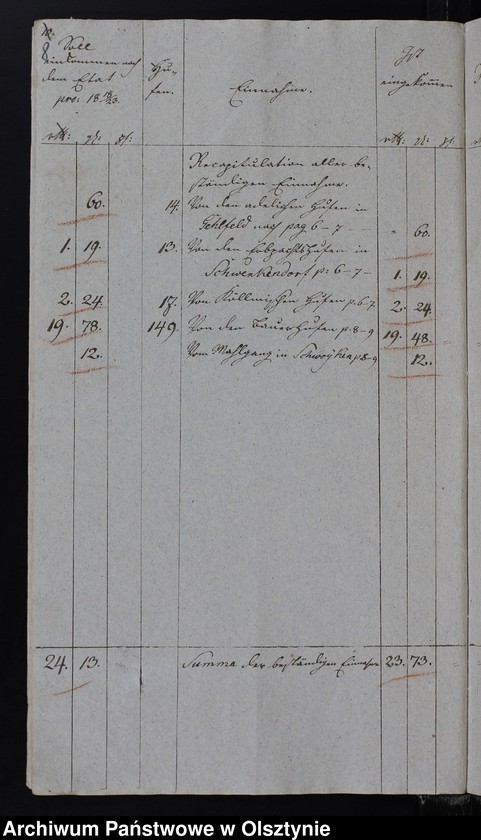 Soll
einkommen nach
dem Etat
pro: 18 22/23.
Hu-
fen.
Einnahme.
Ist
eingekommen
rth: gl: pf:
rth: gl: pf:
Recapitulation aller be-
ständigen Einnahme.
60. 14. Von den adelichen Hufen in
Gehlfeld nach pag 6-7 - " 60.
1. 19. 13. Von den Erbpachtshufen in
Schwenkendorf p: 6-7 - 1. 19.
2. 24. 17. Von Köllmischen Hufen p. 6-7 2. 24.
19. 78. 149. Von den Bauer Hufen p. 8-9 19. 48.
12. Vom Mahlgang in p. 8-9 12.
24. 13. Summa der beständigen Einnahme 23. 73.
Archiwum Państwowe w Olsztynie